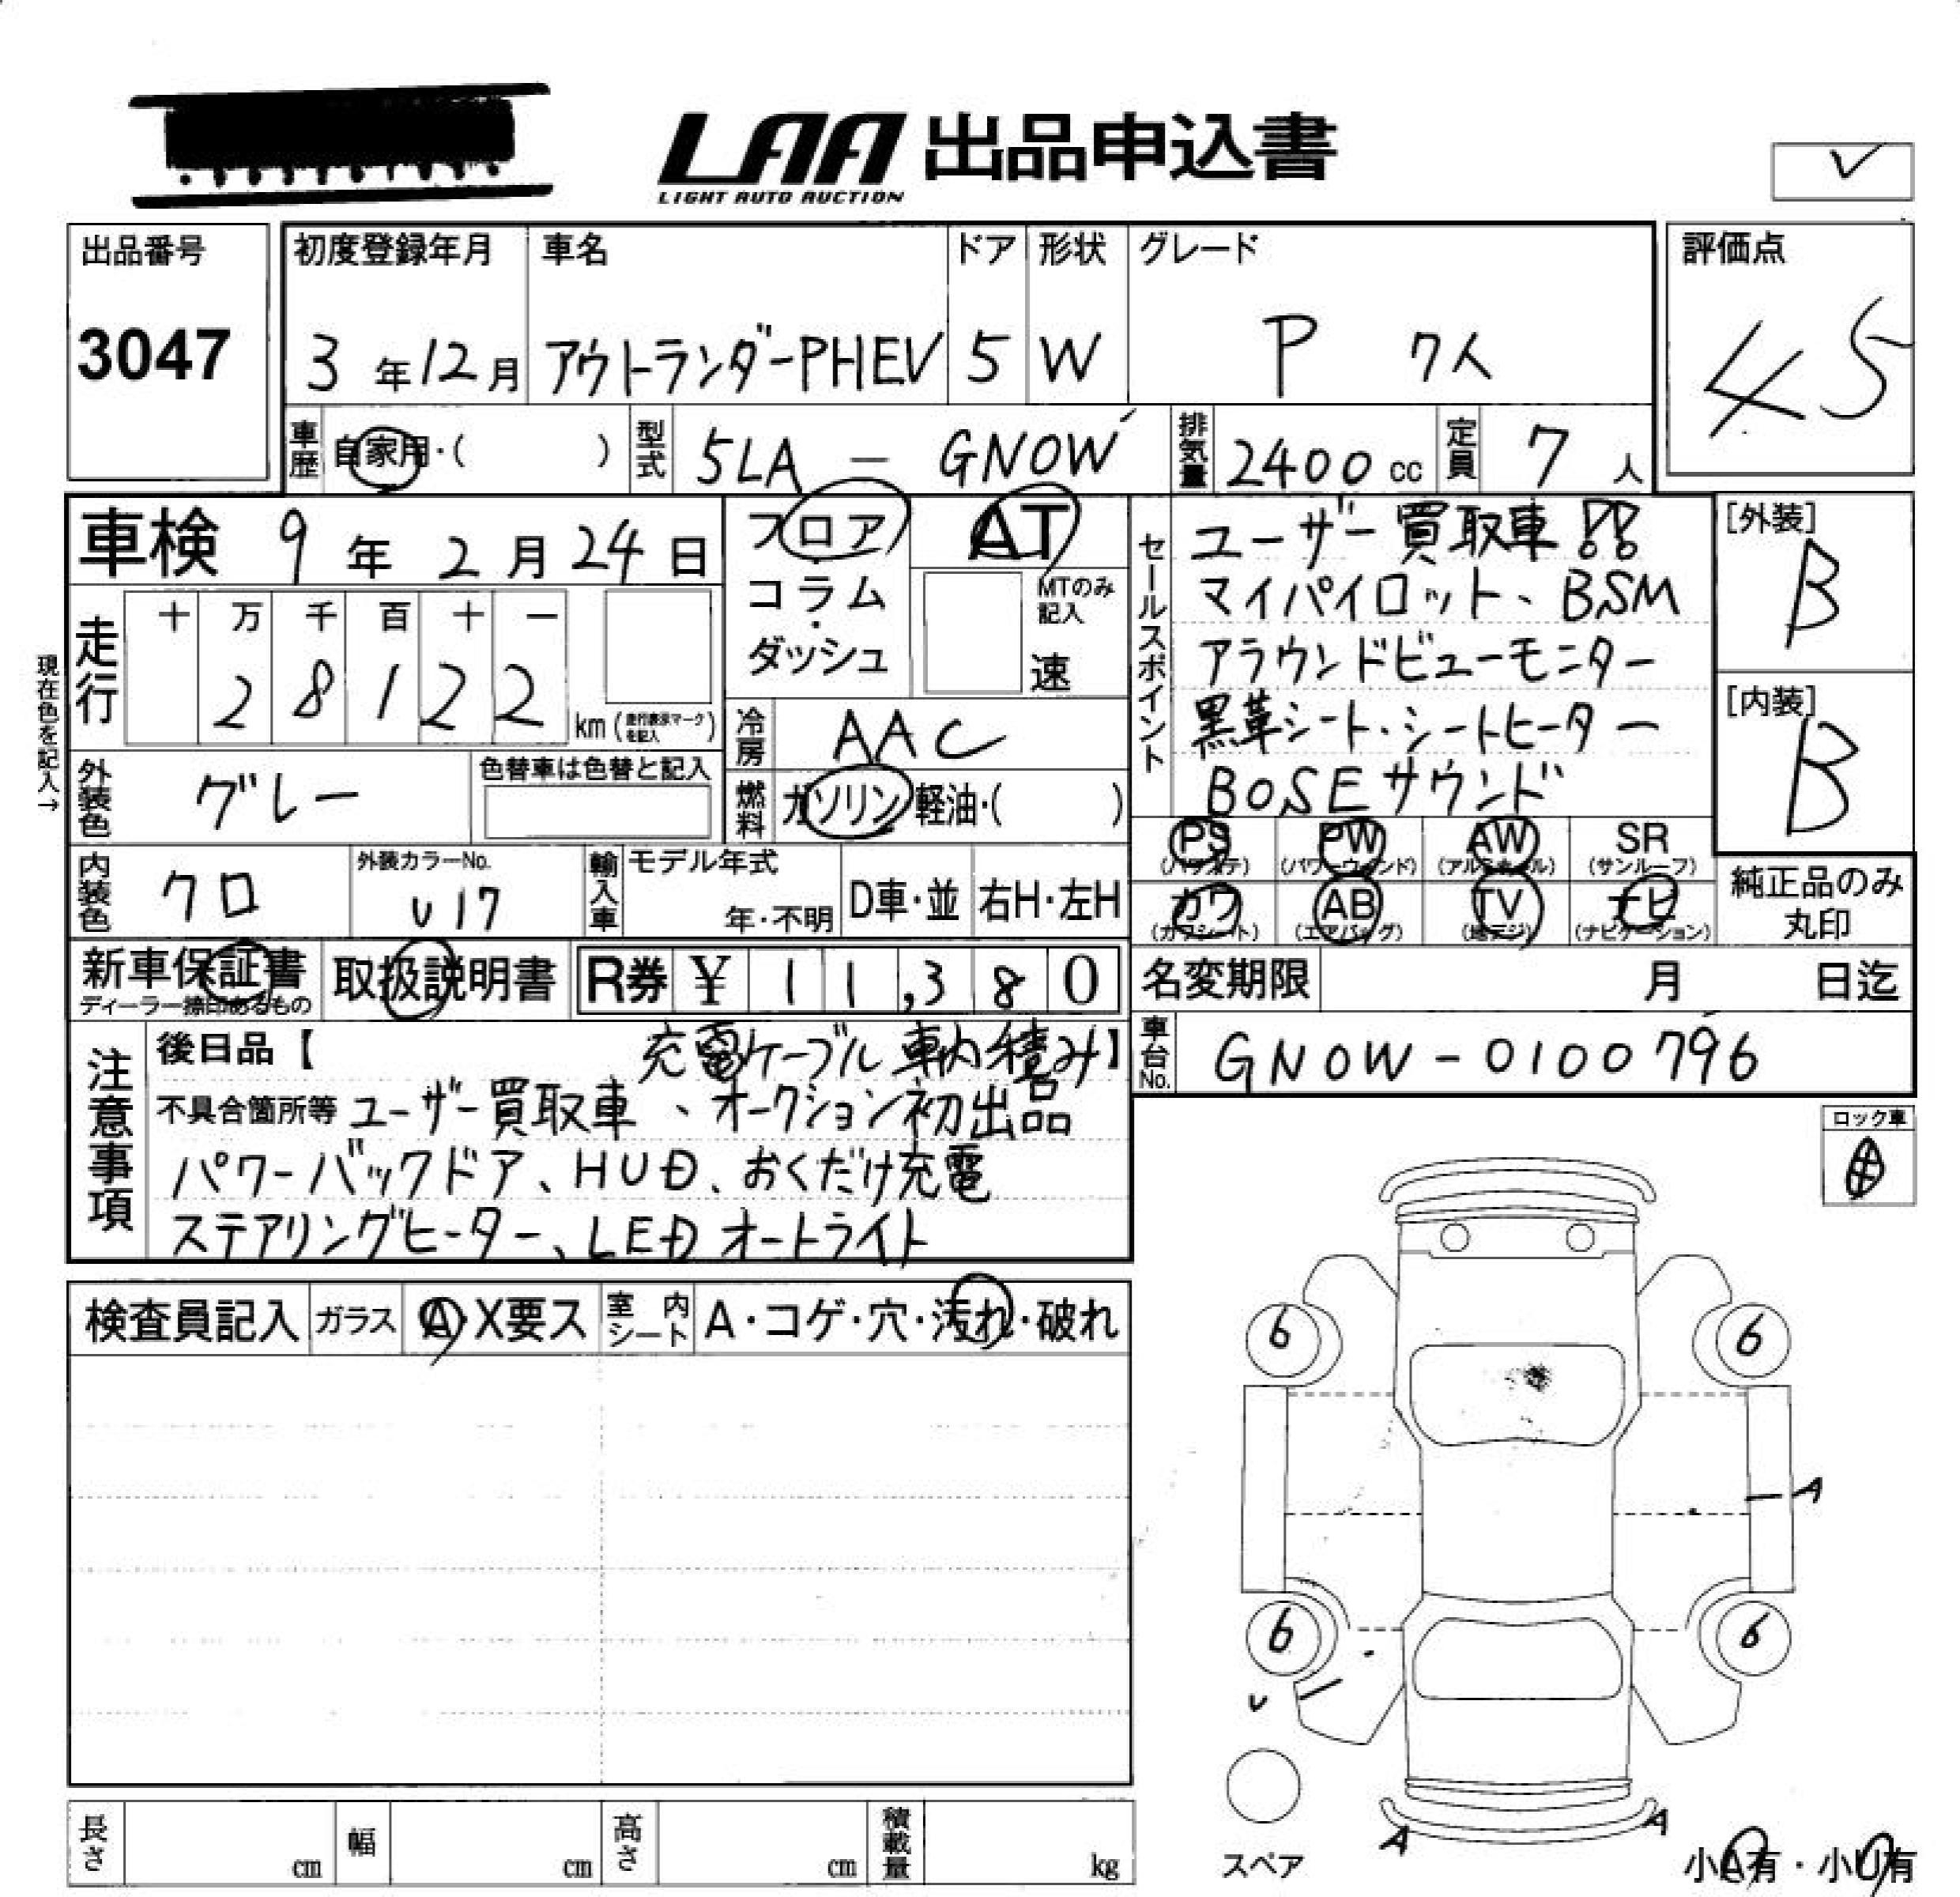 LAA 出品申込書
LIGHT AUTO AUCTION
出品番号
3047
初度登録年月 車名 ドア 形状 グレード
3年12月 アウトランダーPHEV 5 W P 7人
評価点
4 5
車歴 自家用・( ) 型式 5LA - GN0W 排気量 2400cc 定員 7人
車検 9年 2月 24日
フロア
・
コラム
・
ダッシュ
AT
MTのみ記入
速
走行 十 万 千 百 十 一
2 8 1 2 2 km (走行表示マークを記入)
現在色を記入→
冷房 AAC
燃料 ガソリン・軽油・( )
外装色 グレー 色替車は色替と記入
内装色 クロ 外装カラーNo. U17
輸入車 モデル年式 年・不明 D車・並 右H・左H
セールスポイント
ユーザー買取車!!
マイパイロット、BSM
アラウンドビューモニター
黒革シート・シートヒーター
BOSEサウンド
[外装]
B
[内装]
B
PS (パワステ) PW (パワーウィンド) AW (アルミホイル) SR (サンルーフ)
カワ (カワシート) AB (エアバッグ) TV (地デジ) ナビ (ナビゲーション)
純正品のみ
丸印
新車保証書 取扱説明書 R券 ¥11,380
ディーラー捺印あるもの
名変期限 月 日迄
車台No. GN0W-0100796
注意事項
後日品【 充電ケーブル 車内積み】
不具合箇所等 ユーザー買取車、オークション初出品
パワーバックドア、HUD、おくだけ充電
ステアリングヒーター、LEDオートライト
ロック車
検査員記入 ガラス A・X要ス 室内シート A・コゲ・穴・汚れ・破れ
6 6
A
6 6
U
A A
スペア
小A有・小U有
長さ cm 幅 cm 高さ cm 積載量 kg